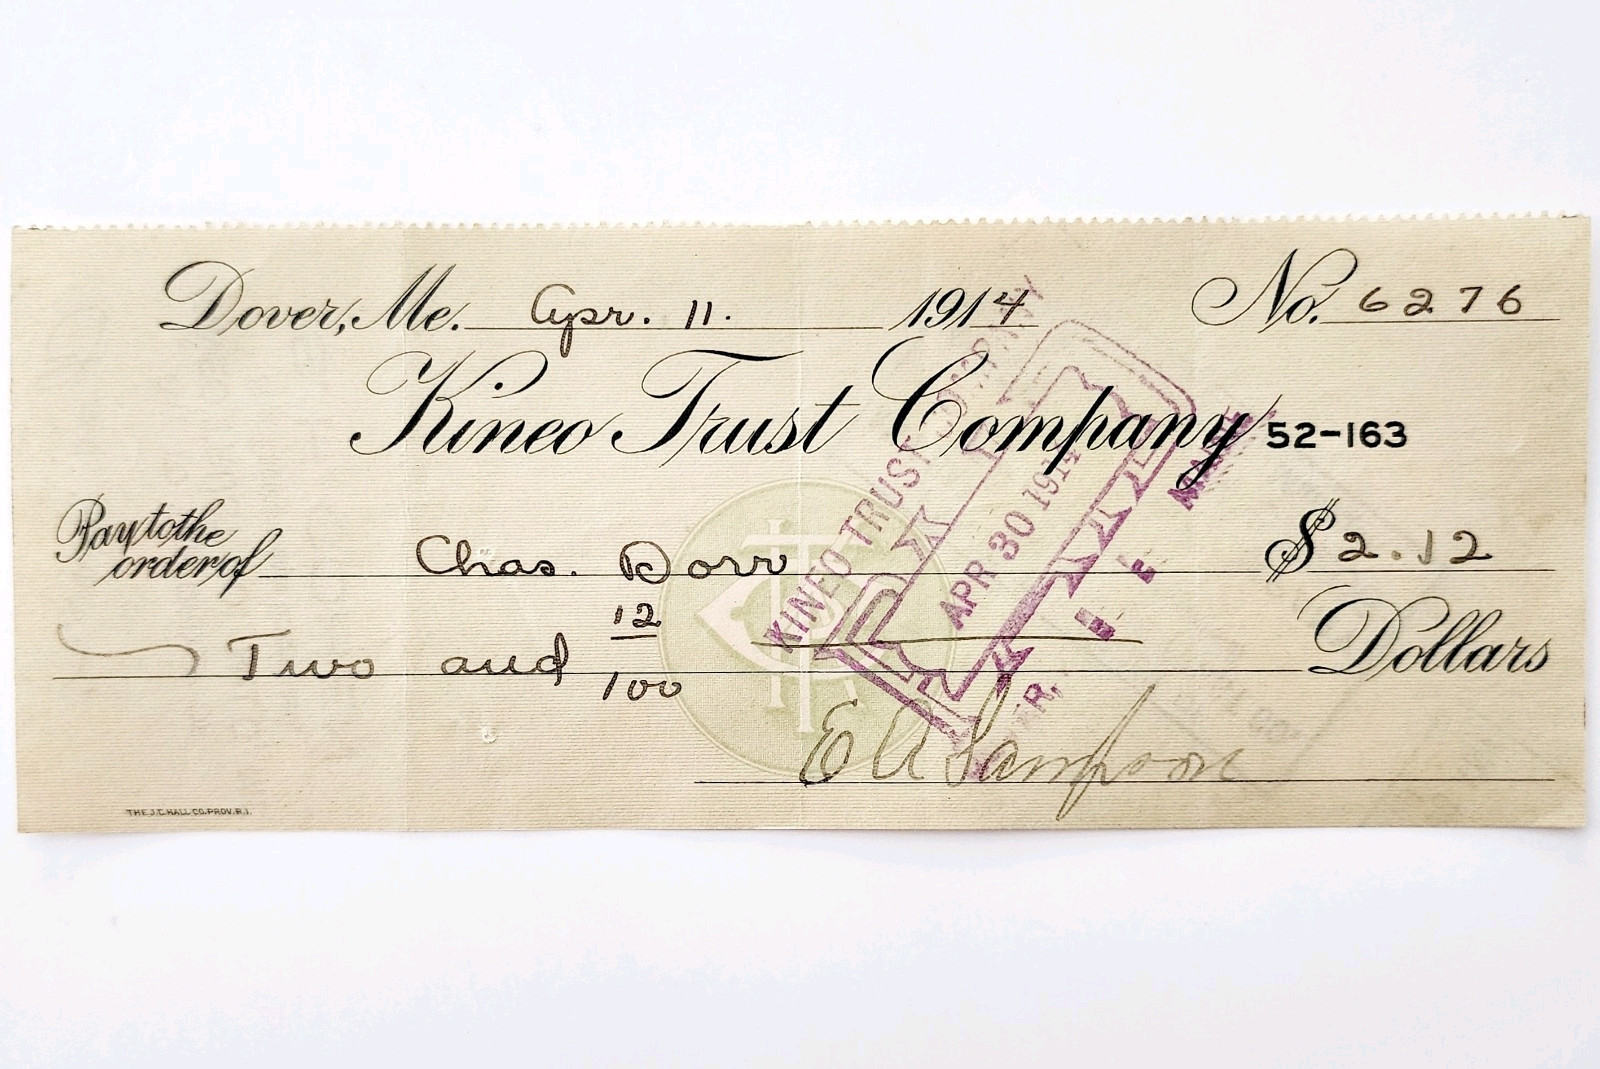 Dover, Me. Apr. 11. 1914 No. 6276
Kineo Trust Company 52-163
Pay to the order of Chas. Dorr $2.12
Two and 12/100 Dollars
E A Sampson
KINEO TRUST COMPANY
PAID
APR 30 1914
THE J.C. HALL CO. PROV. R.I.